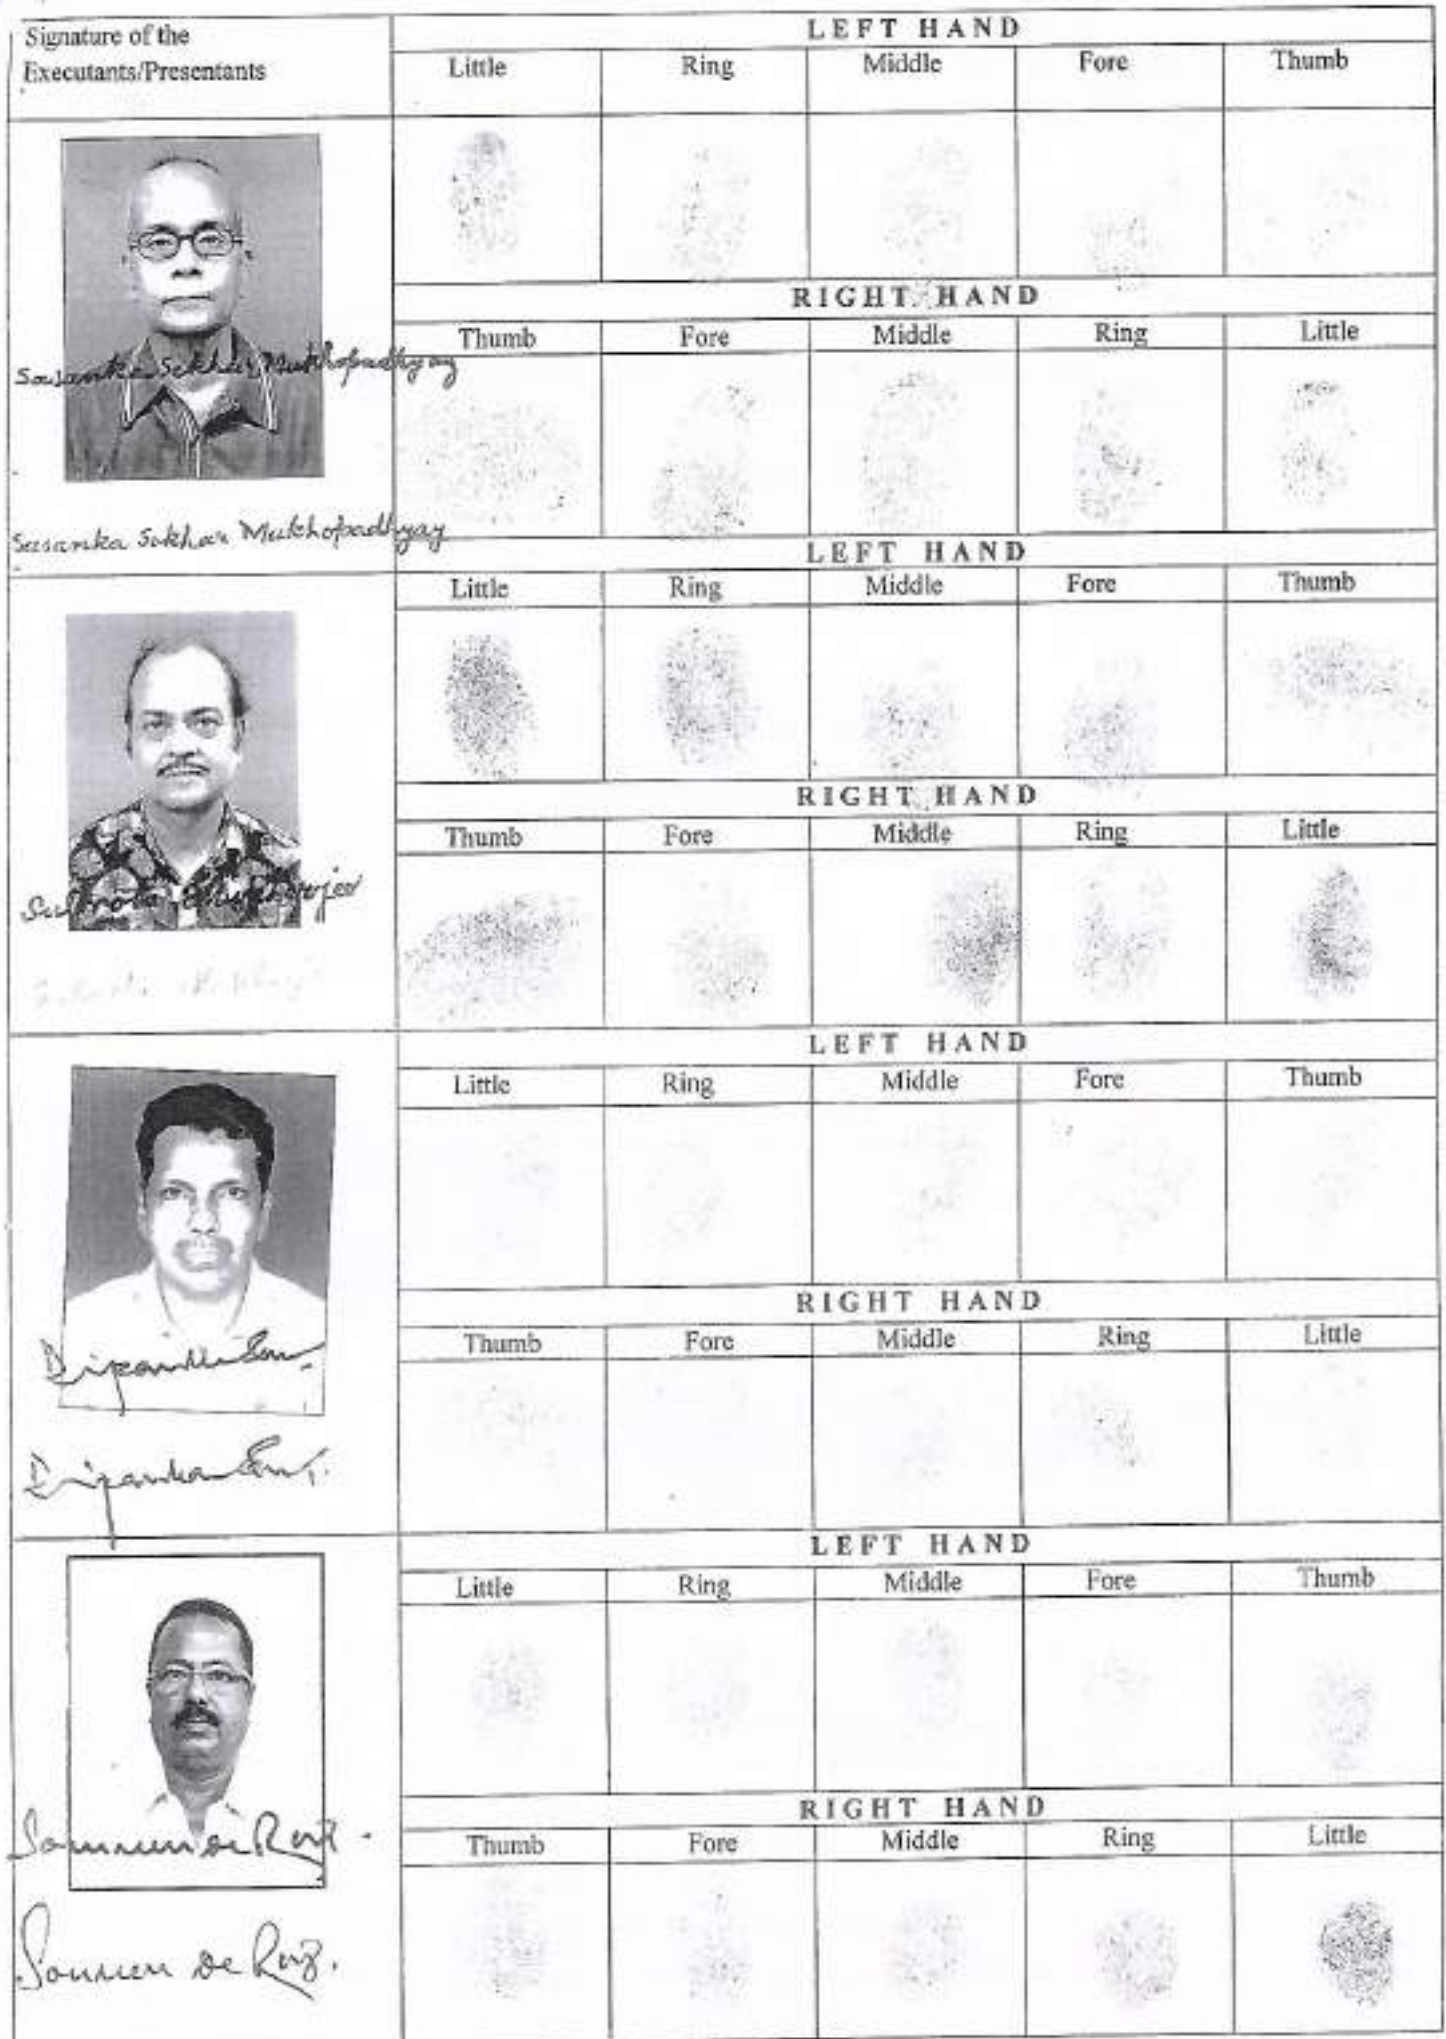 Signature of the
Executants/Presentants
LEFT HAND
Little Ring Middle Fore Thumb
RIGHT HAND
Thumb Fore Middle Ring Little
Sasanka Sekhar Mukhopadhyay
Sasanka Sekhar Mukhopadhyay
LEFT HAND
Little Ring Middle Fore Thumb
RIGHT HAND
Thumb Fore Middle Ring Little
LEFT HAND
Little Ring Middle Fore Thumb
RIGHT HAND
Thumb Fore Middle Ring Little
LEFT HAND
Little Ring Middle Fore Thumb
RIGHT HAND
Thumb Fore Middle Ring Little